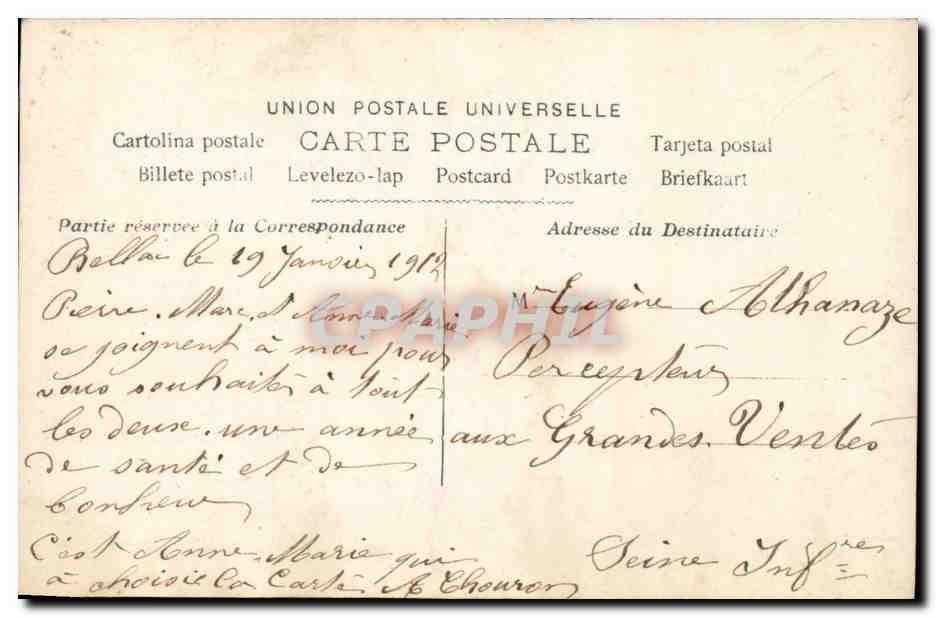 UNION POSTALE UNIVERSELLE
Cartolina postale CARTE POSTALE Tarjeta postal
Billete postal Levelezo-lap Postcard Postkarte Briefkaart
Partie réservée à la Correspondance
Bellac le 19 Janvier 1912
Pierre. Marc. et Anne Marie
se joignent à moi pour
vous souhaiter à tout
les deux. une année
de santé et de
bonheur
C'est Anne Marie qui
à choisie la Carte A Chouron
Adresse du Destinataire
Mr Eugène Athanaze
Percepteur
aux Grandes Ventes
Seine Infre
CPAPHIL